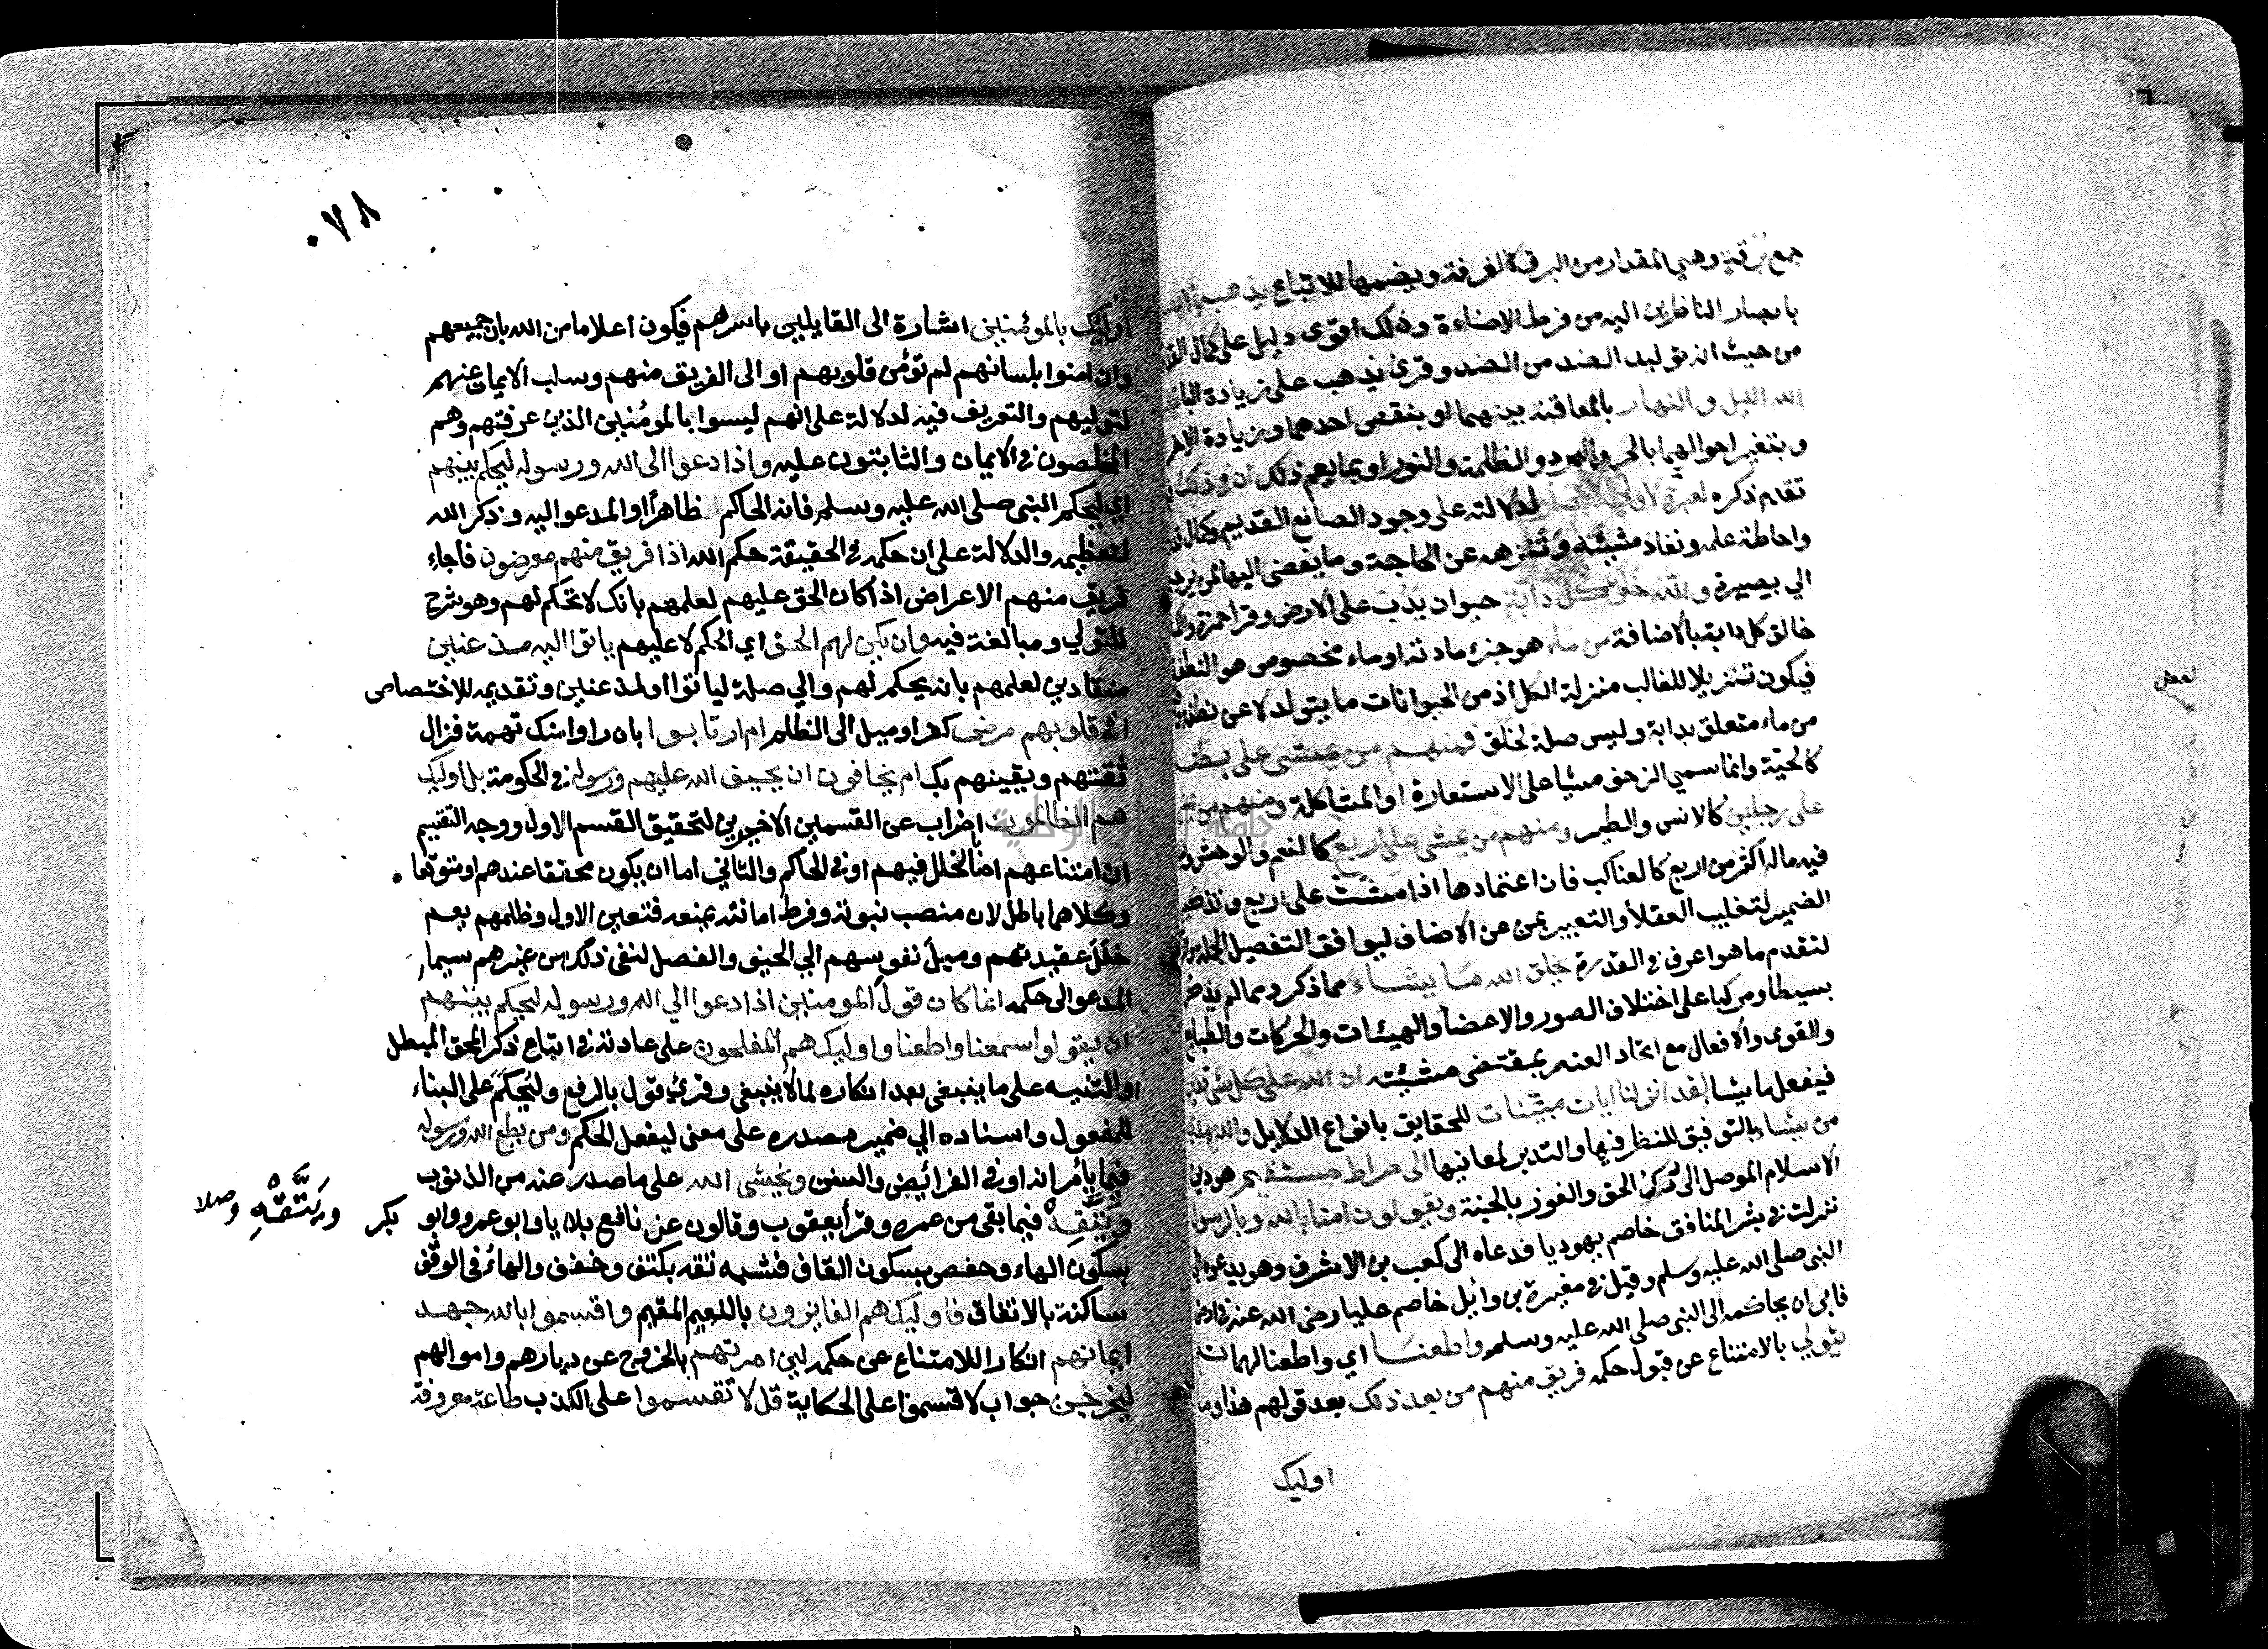 جمع برقة وهي المقدار من البرق كالغرفة وبضمها للاتباع يذهب بالابصار
بابصار الناظرين اليه من فرط الاضاءة وذلك اقوى دليل على كمال
من حيث انه توليد الضد من الضد وقرئ يذهب على زيادة الباء يقلب
الله الليل والنهار بالمعاقبة بينهما او بنقص احدهما وزيادة الاخر
و بتغير احوالهما بالحر والبرد والظلمة والنور او بما يعم ذلك ان في ذلك
تقدم ذكره لعبرة لاولي الابصار لدلالته على وجود الصانع القديم وكمال
واحاطة علمه ونفاذ مشيئته وتنزهه عن الحاجة وما يفضي اليها لمن يرجع
الي بصيرة والله خلق كل دابة حيوان يدب على الارض وقرا حمزة
خالق كل دابة بالاضافة من ماء هو جزء مادته او ماء مخصوص هو النطفة
فيكون تنزيلا للغالب منزلة الكل اذ من الحيوانات ما يتولد لا عن نطفة
من ماء متعلق بدابة وليس صلة لخلق فمنهم من يمشي على بطنه
كالحية وانما سمي الزحف مشيا على الاستعارة او المشاكلة ومنهم من
على رجلين كالانس والطير ومنهم من يمشي على اربع كالنعم والوحش
فيه ما له اكثر من اربع كالعناكب فان اعتمادها اذا مشت على اربع وتذكير
الضمير لتغليب العقلاء والتعبير بمن عن الاصناف ليوافق التفصيل الجملة
لتقدم ما هو اعرف في القدرة يخلق الله ما يشاء مما ذكر ومما لم يذكر
بسيطا ومركبا على اختلاف الصور والاعضا والهيئات والحركات والطبايع
والقوى والافعال مع اتحاد العنصر بمقتضى مشيئته ان الله على كل شي قدير
فيفعل ما يشا لقد انزلنا ايات مبينات للحقايق بانواع الدلايل والله يهدي
من يشاء بالتوفيق للنظر فيها والتدبر لمعانيها الى صراط مستقيم هو دين
الاسلام الموصل الى درك الحق والفوز بالجنة ويقولون امنا بالله وبالرسول
نزلت في بشر المنافق خاصم يهوديا فدعاه الى كعب بن الاشرف وهو يدعوه الى
النبى صلى الله عليه وسلم وقيل في مغيرة بن وائل خاصم عليا رضى الله عنه في ارض
فابى ان يحاكمه الى النبى صلى الله عليه وسلم واطعنا اي واطعنا لهما ثم
يتولي بالامتناع عن قبول حكمه فريق منهم من بعد ذلك بعد قولهم هذا وما
اوليك
٠٧٨
اوليك بالمؤمنين اشارة الى القايلين باسرهم فيكون اعلاما من الله بان جميعهم
وان امنوا بلسانهم لم تؤمن قلوبهم او الى الفريق منهم وسلب الايمان عنهم
لتوليهم والتعريف فيه لدلالة على انهم ليسوا بالمؤمنين الذين عرفتهم وهم
المخلصون في الايمان والثابتون عليه واذا دعوا الى الله ورسوله ليحكم بينهم
اي ليحكم النبى صلى الله عليه وسلم فانه الحاكم ظاهرا والمدعو اليه وذكر الله
لتعظيمه والدلالة على ان حكمه في الحقيقة حكم الله اذا فريق منهم معرضون فاجاء
فريق منهم الاعراض اذا كان الحق عليهم لعلمهم بانك لا تحكم لهم وهو شرح
للتولي ومبالغة فيه وان يكن لهم الحق اي الحكم لا عليهم ياتوا اليه مذعنين
منقادين لعلمهم بانه يحكم لهم والي صلة لياتوا او لمذعنين وتقديمه للاختصاص
افي قلوبهم مرض كفر او ميل الى الظلم ام ارتابوا بان راوا منك تهمة فزال
ثقتهم ويقينهم بك ام يخافون ان يحيف الله عليهم ورسوله في الحكومة بل اوليك
هم الظالمون اضراب عن القسمين الاخيرين لتحقيق القسم الاول ووجه التقسيم
ان امتناعهم اما لخلل فيهم او في الحاكم والثاني اما ان يكون محققا عندهم او متوقعا
وكلاهما باطل لان منصب نبوته وفرط امانته يمنعه فتعين الاول وظلمهم يعم
خلل عقيدتهم وميل نفوسهم الي الحيف والفصل لنفي ذلك من غيرهم سيما
المدعو الى حكمه انما كان قول المومنين اذا دعوا الي الله ورسوله ليحكم بينهم
ان يقولوا سمعنا واطعنا واوليك هم المفلحون على عادته في اتباع ذكر المحق المبطل
والتنبيه على ما ينبغي بعد انكاره لما لا ينبغي وقرئ قول بالرفع وليحكم على البناء
للمفعول واسناده الي ضمير مصدره على معنى ليفعل الحكم ومن يطع الله ورسوله
فيما يأمرانه او في الفرائض والسنن ويخشى الله على ما صدر عنه من الذنوب
ويتقه فيما بقى من عمره وقرأ يعقوب وقالون عن نافع بلا ياء وابو عمرو وابو بكر
ويتقه وصلا
بسكون الهاء وحفص بسكون القاف فشبه تقه بكتف وخفف والهاء في الوقف
ساكنة بالاتفاق فاوليك هم الفايزون بالنعيم المقيم واقسموا بالله جهد
ايمانهم انكارا للامتناع عن حكمه لين امرتهم بالخروج عن ديارهم واموالهم
ليخرجن جواب لاقسموا على الحكاية قل لا تقسموا على الكذب طاعة معروفة